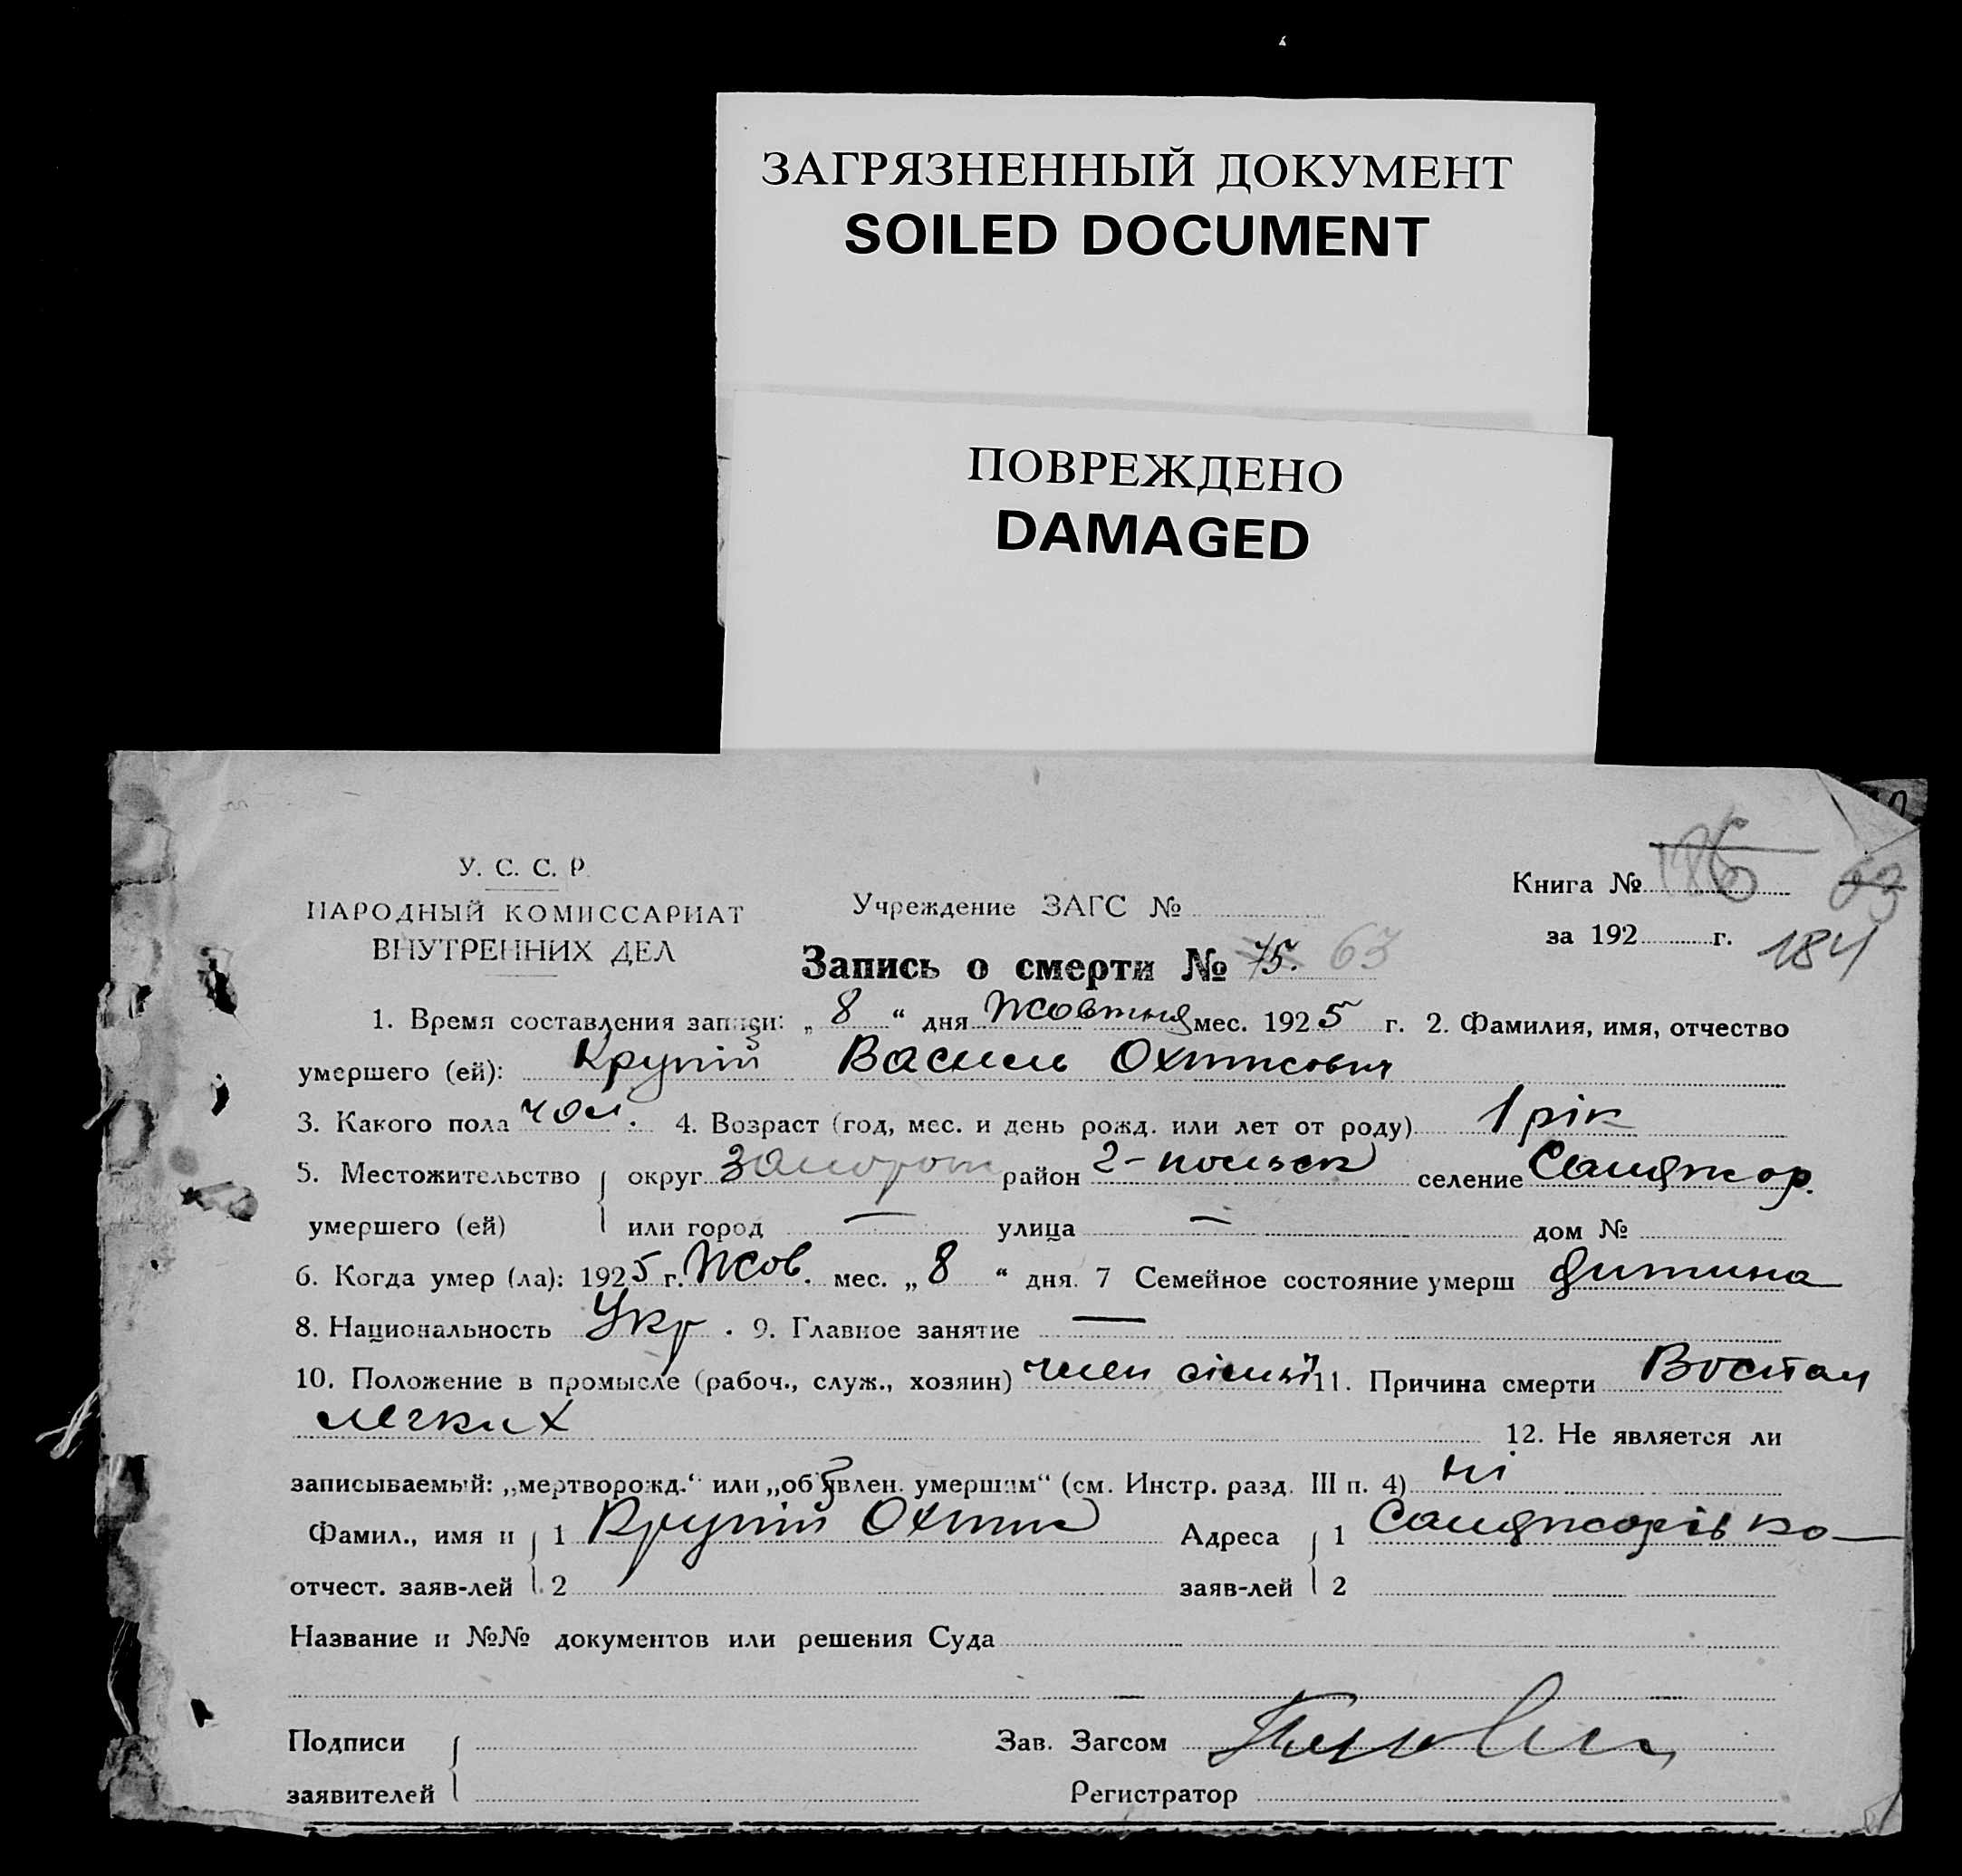 ЗАГРЯЗНЕННЫЙ ДОКУМЕНТ
SOILED DOCUMENT
ПОВРЕЖДЕНО
DAMAGED
У. С. С. Р.
НАРОДНЫЙ КОМИССАРИАТ
ВНУТРЕННИХ ДЕЛ
Учреждение ЗАГС №
Книга № 63
за 192 г. 184
Запись о смерти № 75. 63
1. Время составления записи: „ 8 “ дня Жовтня мес. 1925 г. 2. Фамилия, имя, отчество
умершего (ей): Крупій Василь Охтисович
3. Какого пола чол. 4. Возраст (год, мес. и день рожд. или лет от роду) 1 рік
5. Местожительство округ Запорот район 2-польськ селение Санджар.
умершего (ей) или город — улица — дом №
6. Когда умер (ла): 1925 г. Жов. мес. „ 8 “ дня. 7 Семейное состояние умерш дитина
8. Национальность Укр. 9. Главное занятие —
10. Положение в промысле (рабоч., служ., хозяин) член сімьї 11. Причина смерти Воспал
легких
12. Не является ли
записываемый: „мертворожд.“ или „объявлен. умершим“ (см. Инстр. разд. III п. 4) ні
Фамил., имя и 1 Крупій Адреса 1
отчест. заяв-лей 2 заяв-лей 2
Название и №№ документов или решения Суда
Подписи Зав. Загсом
заявителей Регистратор